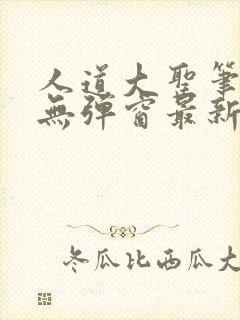 人道大聖筆
無彈窗最新
冬瓜比西瓜大